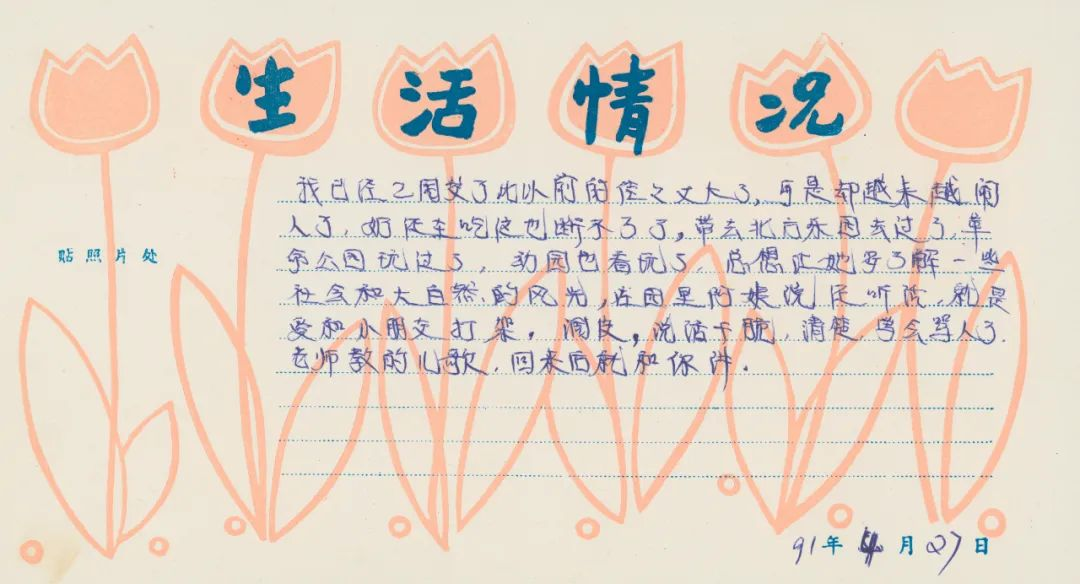 生活情况
我已经2周岁了比以前的又丈大了,可是却越来越闹
人了,奶还在吃但也断不了了,带去北方乐园去过了,革
命公园玩过了,动园也看玩了,总想让她多了解一些
贴照片处
社会和大自然的风光,在园里阿姨说还听说,就是
爱和小朋友打架,调皮,说话干脆,清楚,学会骂人了.
老师教的儿歌,回来后就和你讲.
91年4月27日